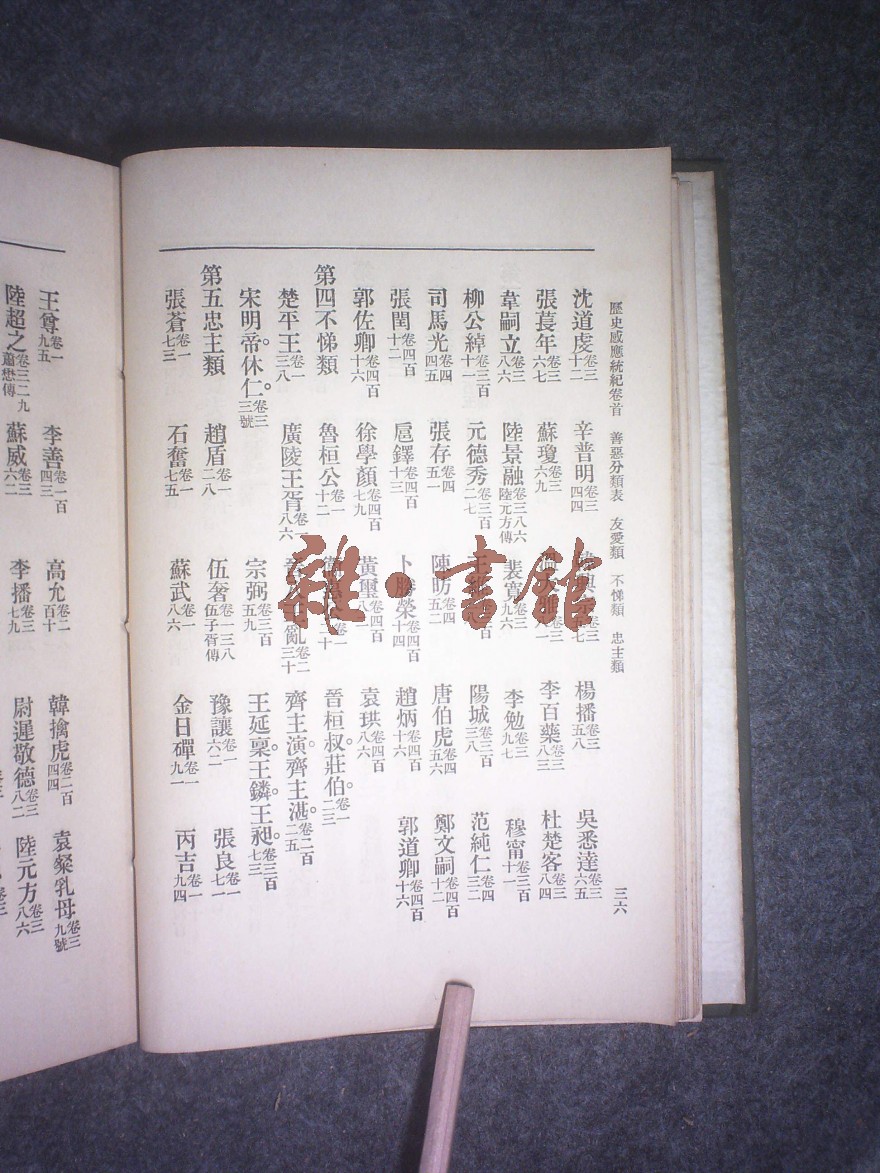 歷史感應統紀卷首 善惡分類表 友愛類 不悌類 忠主類 三六
沈道虔卷三十二 辛普明卷三四四 楊播卷三五八 吳悉達卷三六五
張萇年卷三六七 蘇瓊卷三六九 李百藥卷三八三 杜楚客卷三八四
韋嗣立卷三八六 陸景融卷三八六陸元方傳 裴寬卷三九六 李勉卷三九七 穆甯卷三百十一
柳公綽卷三百十一 元德秀卷三百二七 陽城卷三三八 范純仁卷四三二
司馬光卷四四五 張存卷四五一 陳昉卷四五二 唐伯虎卷四五六 鄭文嗣卷四百十二
張閏卷四百十二 扈鐸卷四百十三 卜勝榮卷四百十四 趙炳卷四百十六 郭道卿卷四百十六
郭佐卿卷四百十六 徐學顏卷四百七九 黃璽卷四百八二 袁珙卷四百八六
第四不悌類 魯桓公卷一十二 晉桓叔。莊伯。卷一二三
楚平王卷一三八 廣陵王胥卷一八六 齊主演。齊主湛。卷二百二五
宋明帝。休仁。卷三三號 宗弼卷三百五九 王延稟。王鏻。王昶。卷三百七三
第五忠主類 趙盾卷一二八 伍奢卷一三八伍子胥傳 豫讓卷一六二 張良卷一七一
張蒼卷一七三 石奮卷一七五 蘇武卷一八六 金日磾卷一九一 丙吉卷一九四
王尊卷一九五 李善卷一百四三 高允卷二百十 韓擒虎卷二百四四 袁粲乳母卷三九號
陸超之卷三二九蕭懋傳 蘇威卷三六二 李播卷三七九 尉遲敬德卷三八二 陸元方卷三八六
雜·書館